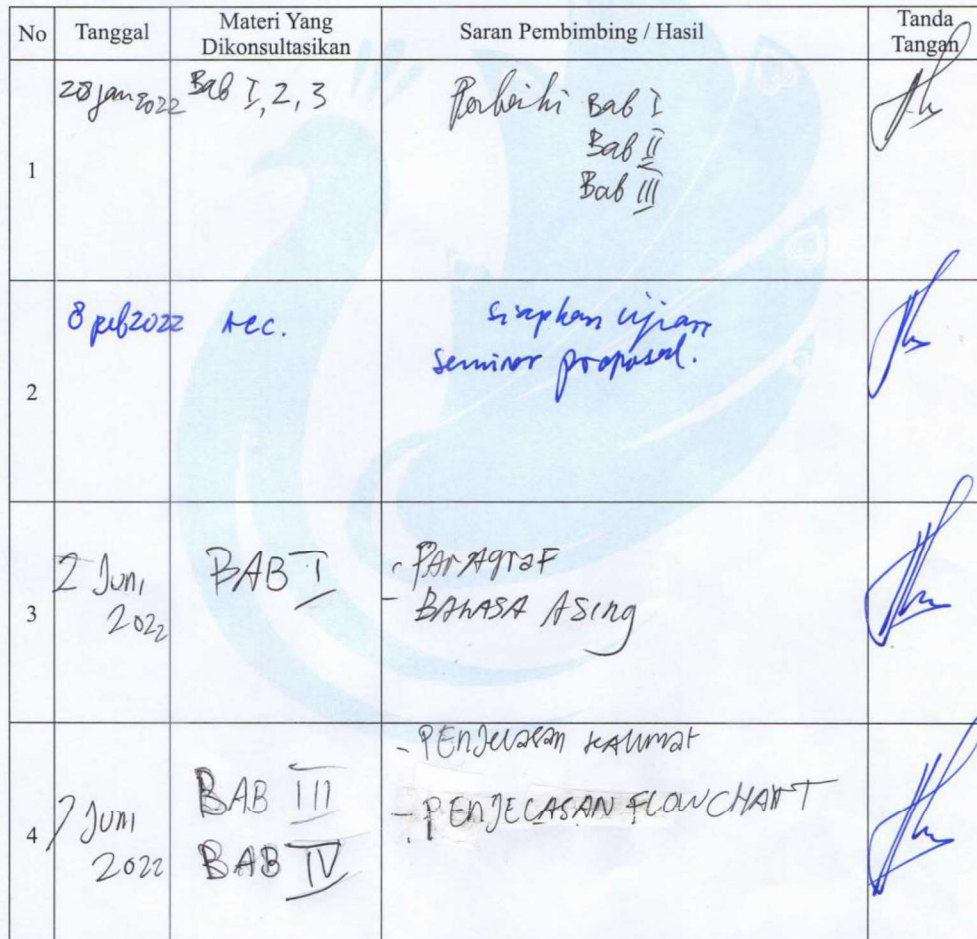 No Tanggal Materi Yang Dikonsultasikan Saran Pembimbing / Hasil Tanda Tangan
1 28 Jan 2022 Bab I, 2, 3 Perbaiki Bab I
Bab II
Bab III
2 8 peb 2022 Acc. Siapkan ujian
seminar proposal.
3 2 Juni 2022 BAB I - PARAgraF
- BAHASA ASing
4 7 Juni 2022 BAB III - PEnJelasan KALimat
BAB IV - PENJELASAN FLOWCHART